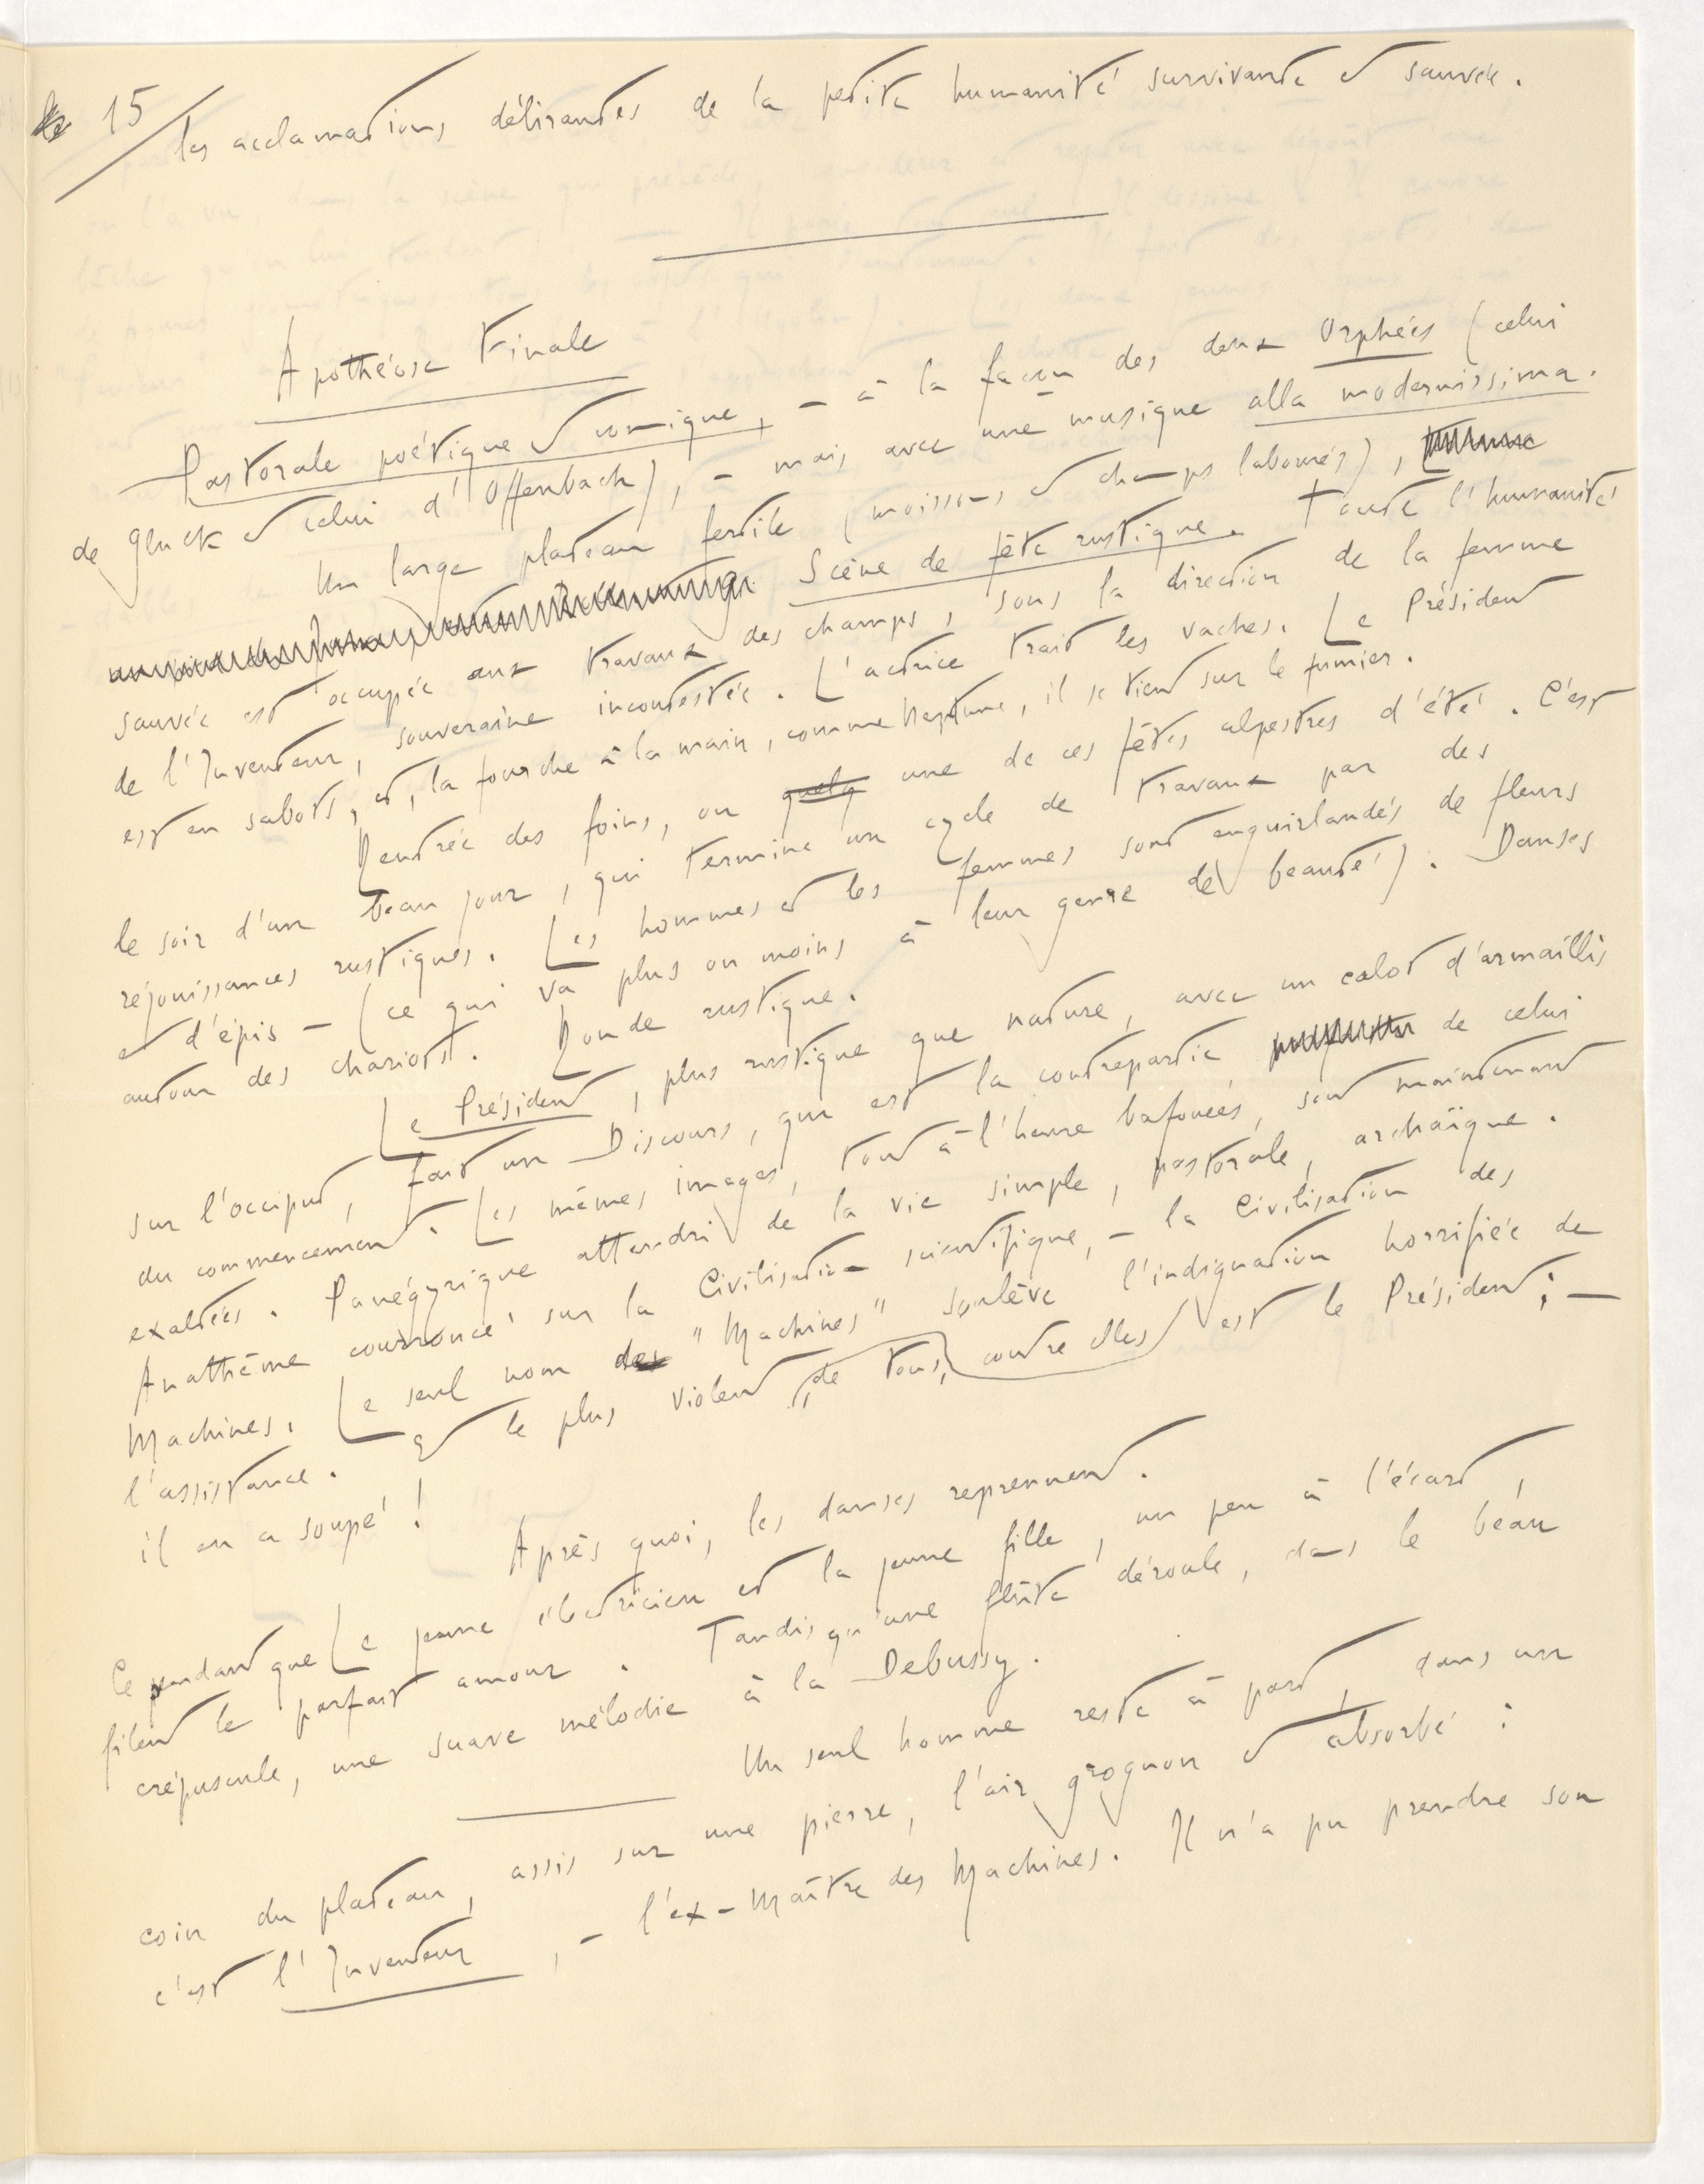 15/ les acclamations délirantes de la petite humanité survivante et sauvée.
Apothéose Finale
Pastorale poétique et comique, — à la façon des deux Orphées (celui
de Gluck et celui d'Offenbach), — mais avec une musique alla modernissima.
Un large plateau fertile (moissons et champs labourés),
Scène de fête rustique. Toute l'humanité
sauvée est occupée aux travaux des champs, sous la direction de la femme
de l'Inventeur, souveraine incontestée. L'actrice trait les vaches. Le Président
est en sabots, et, la fourche à la main, comme Neptune, il se tient sur le fumier.
Rentrée des foins, ou quelq une de ces fêtes alpestres d'été. C'est
le soir d'un beau jour, qui termine un cycle de travaux par des
réjouissances rustiques. Les hommes et les femmes sont enguirlandés de fleurs
et d'épis — (ce qui va plus ou moins à leur genre de beauté). Danses
autour des chariots. Ronde rustique.
Le Président, plus rustique que nature, avec un calot d'armaillis
sur l'occiput, fait un Discours, qui est la contrepartie de celui
du commencement. Les mêmes images, tout à l'heure bafouées, sont maintenant
exaltées. Panégyrique attendri de la vie simple, pastorale, archaïque.
Anathème courroucé sur la Civilisation scientifique, — la Civilisation des
Machines. Le seul nom des "Machines" soulève l'indignation horrifiée de
l'assistance. Et le plus violent, de tous, contre elles est le Président; —
il en a soupé!
Après quoi, les danses reprennent.
Cependant que Le jeune électricien et la jeune fille, un peu à l'écart,
filent le parfait amour. Tandis qu'une flûte déroule, dans le beau
crépuscule, une suave mélodie à la Debussy.
Un seul homme reste à part, dans un
coin du plateau, assis sur une pierre, l'air grognon et absorbé :
c'est l'Inventeur, — l'ex-Maître des Machines. Il n'a pu prendre son